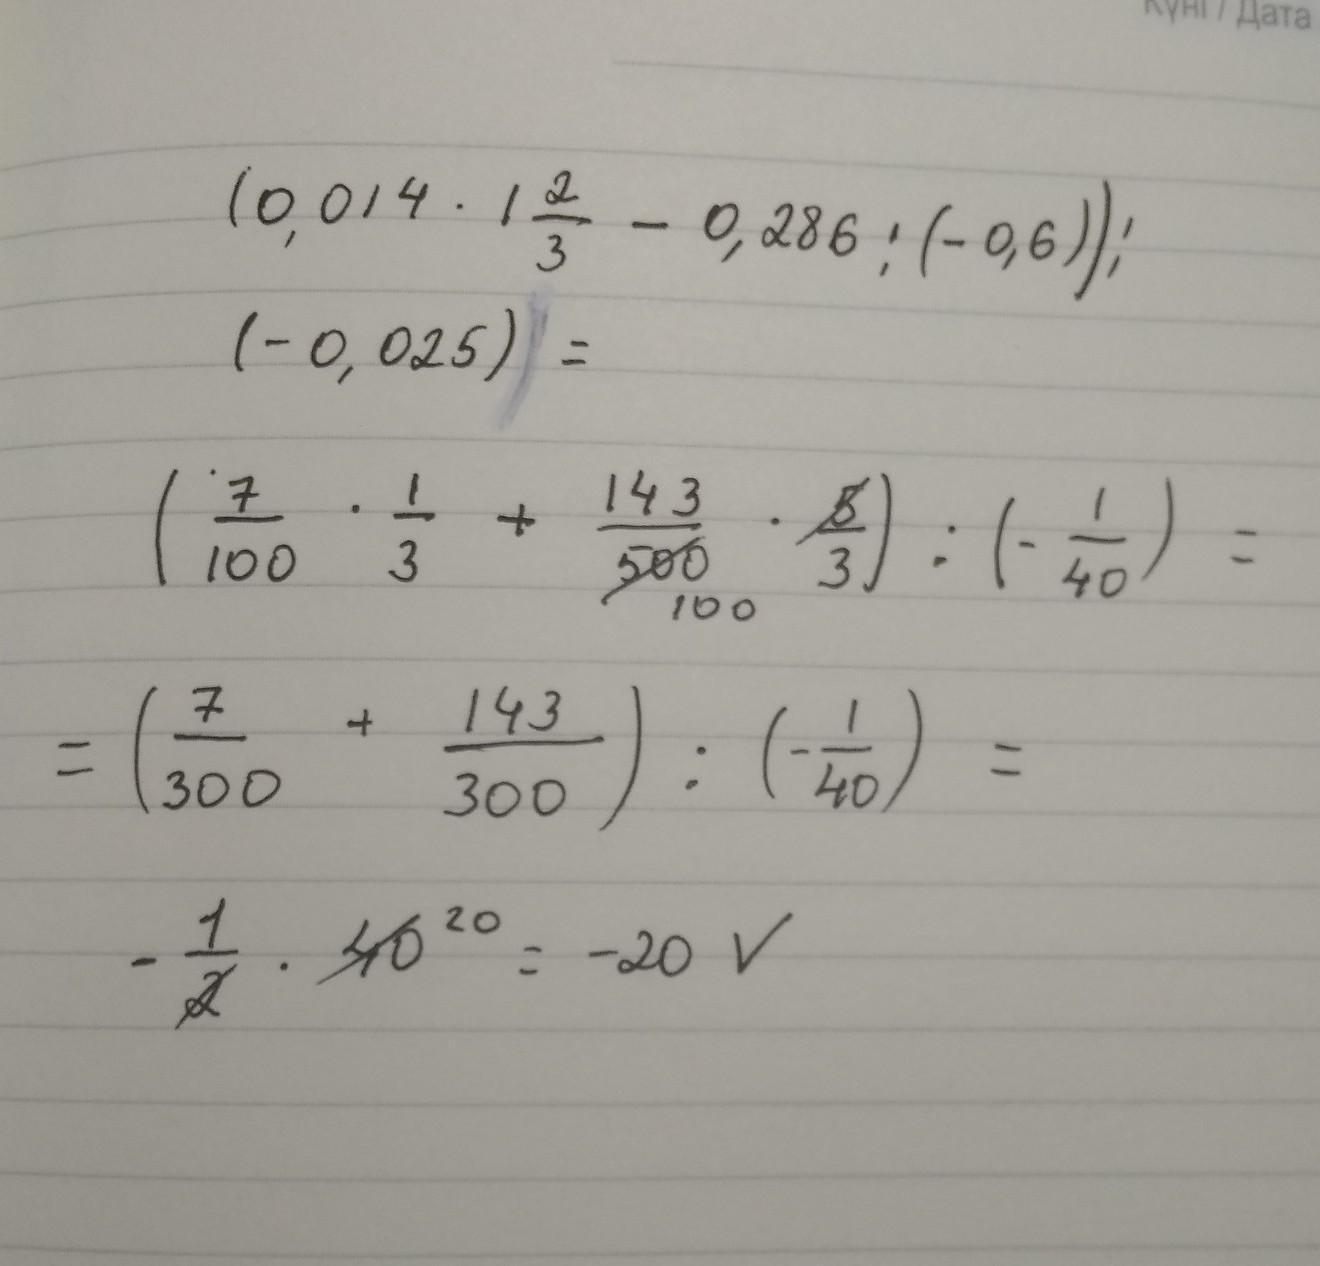 Күні / Дата
(0,014 · 1 2/3 - 0,286 : (-0,6)) :
(-0,025) =
(7/100 · 1/3 + 143/500 100 · 5/3) : (-1/40) =
= (7/300 + 143/300) : (-1/40) =
-1/2 · 40 20 = -20 ✓